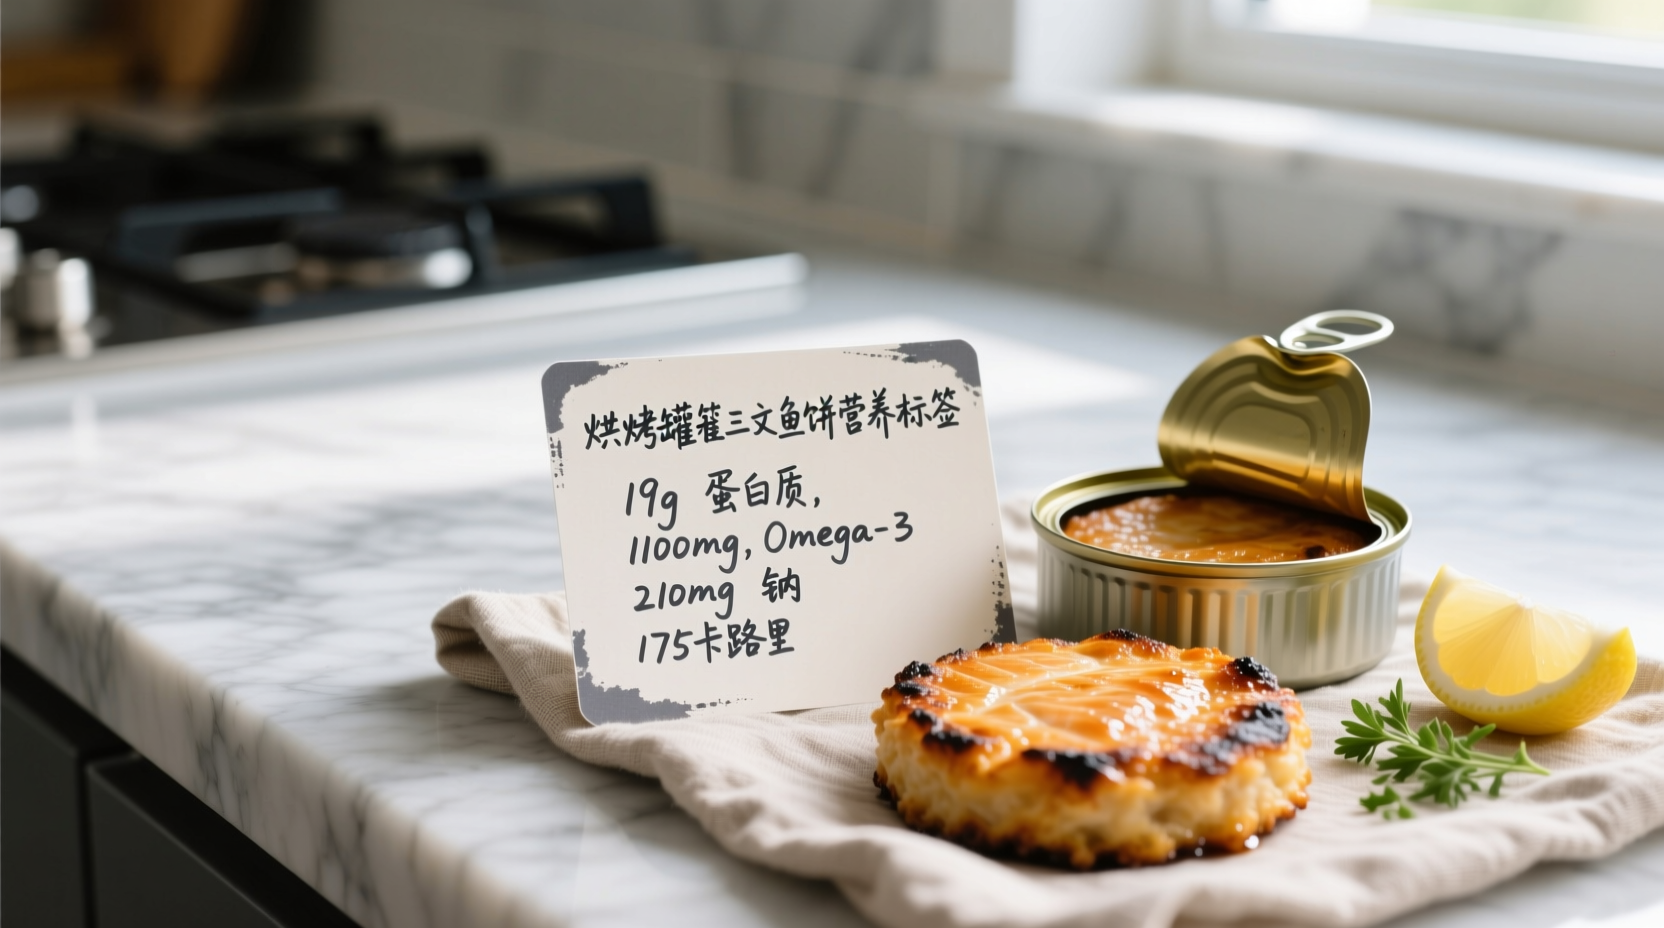 烘烤罐萑三文鱼饼营养标签
19g 蛋白质,
1100mg, Omega-3
210mg 钠
175卡路里